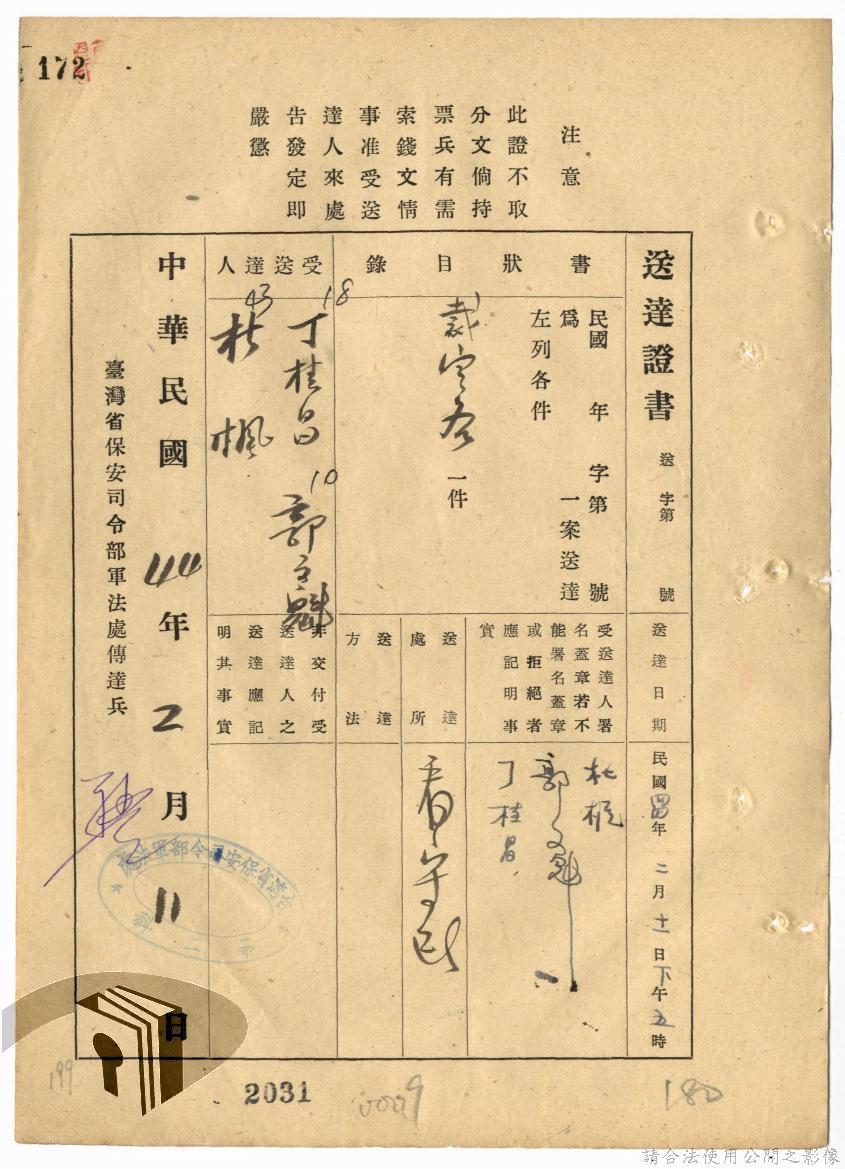 172
注意
此證不取
分文倘持
票兵有需
索錢文情
事准受送
達人來處
告發定即
嚴懲
送達證書
送 字第 號
送達日期
民國四四年二月十一日下午五時
書狀目錄
民國 年 字第 號
為 一案送達
左列各件
裁定各 一件
受送達人署
名蓋章若不
能署名蓋章
或拒絕者
應記明事
實
杜楓
郭文魁
丁桂昌
送達
處所
看守所
送達
方法
受送達人
18
丁桂昌
10
郭文魁
43
杜楓
非交付受
送達人之
送達應記
明其事實
中華民國 44 年 2 月 11 日
臺灣省保安司令部軍法處傳達兵
台灣省保安司令部軍法處
2031
199
180
請合法使用公開之影像